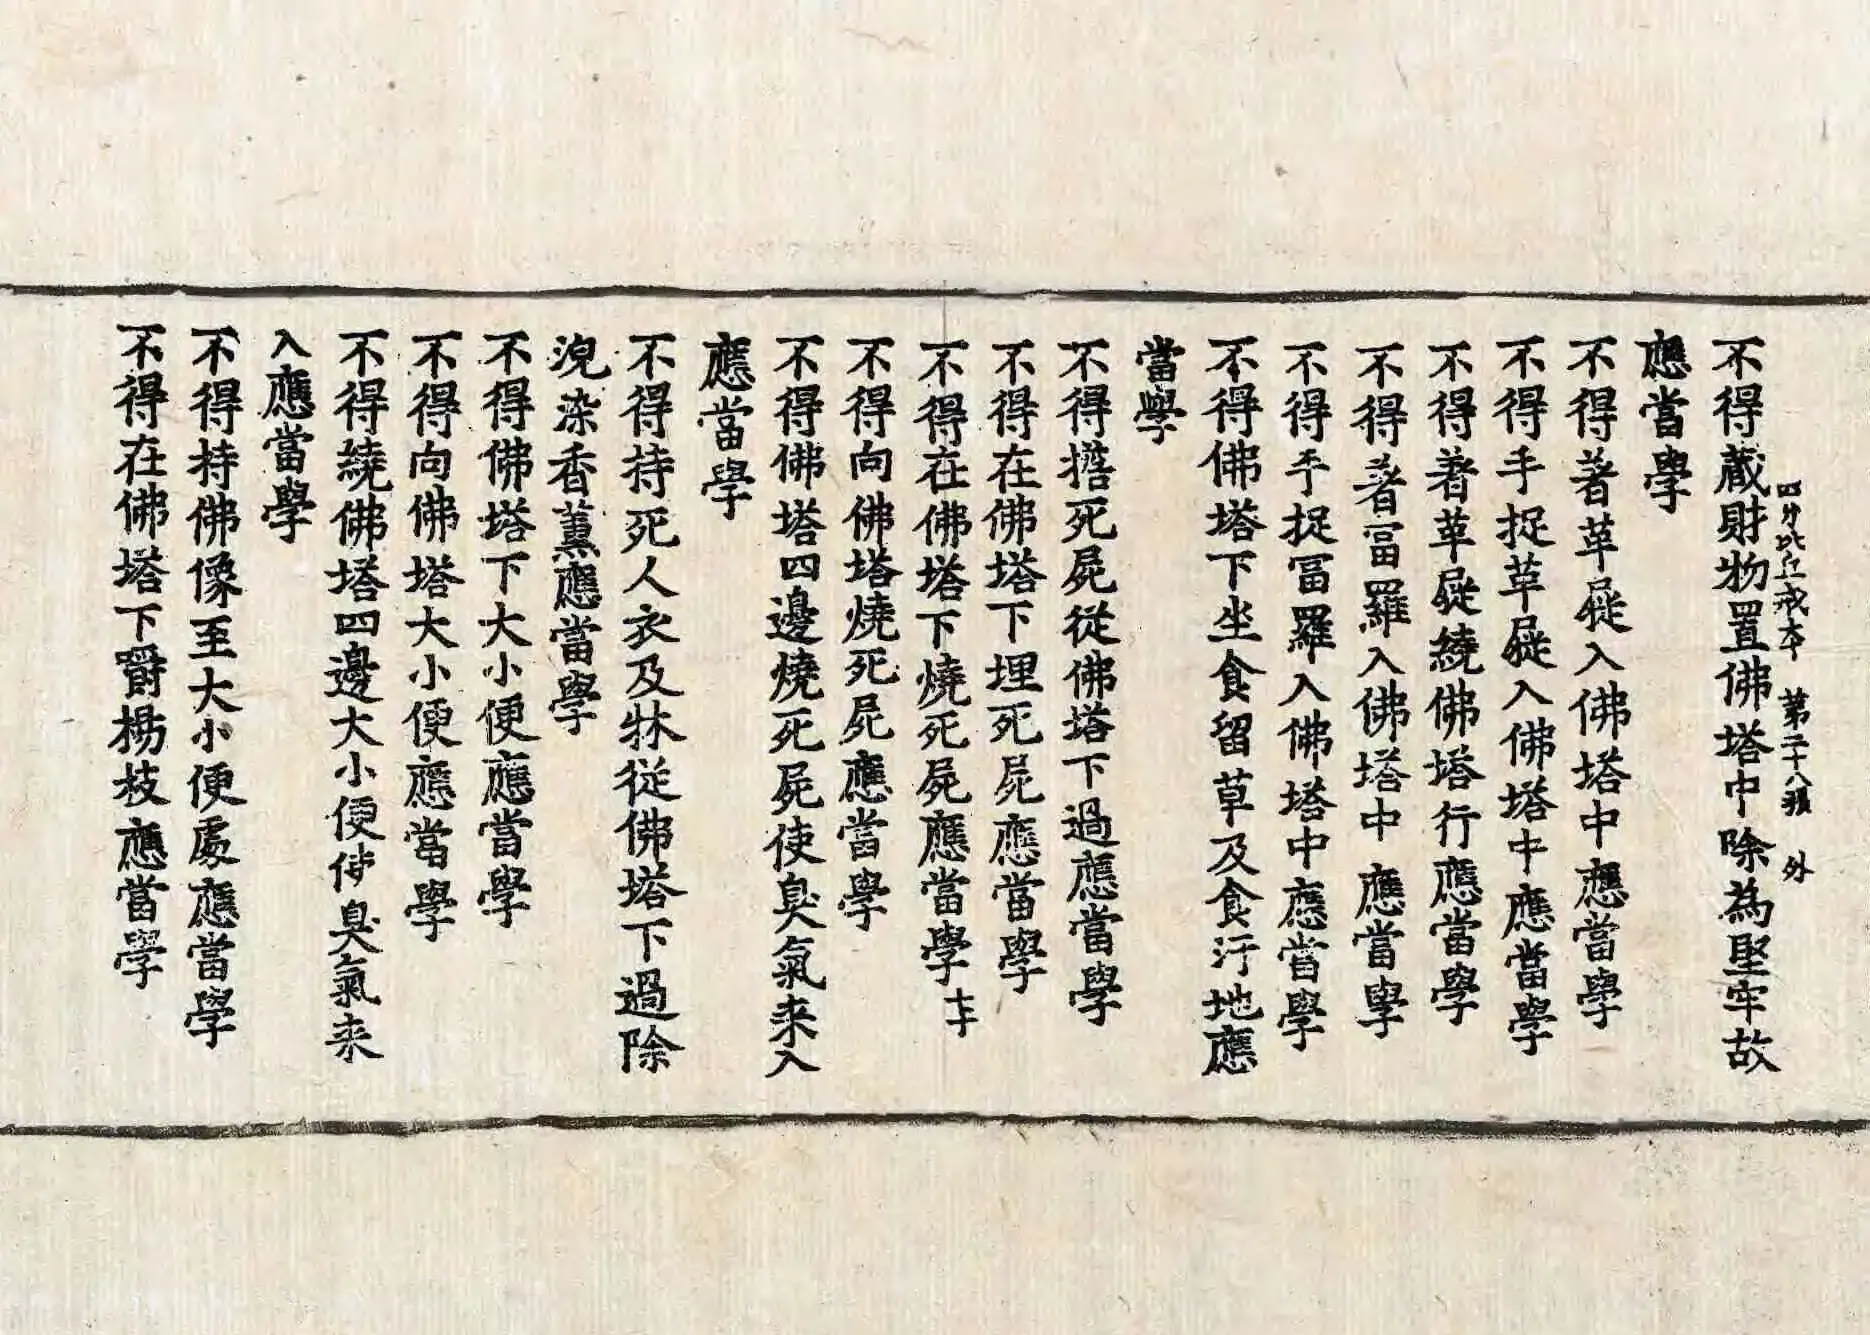 四分比丘戒本 第二十八張 外
不得藏財物置佛塔中除為堅牢故
應當學
不得著革屣入佛塔中應當學
不得手捉革屣入佛塔中應當學
不得著革屣繞佛塔行應當學
不得著冨羅入佛塔中應當學
不得手捉冨羅入佛塔中應當學
不得佛塔下坐食留草及食汙地應
當學
不得擔死屍從佛塔下過應當學
不得在佛塔下埋死屍應當學
不得在佛塔下燒死屍應當學
不得向佛塔燒死屍應當學
不得佛塔四邊燒死屍使臭氣来入
應當學
不得持死人衣及牀從佛塔下過除
浣染香薫應當學
不得佛塔下大小便應當學
不得向佛塔大小便應當學
不得繞佛塔四邊大小便使臭氣来
入應當學
不得持佛像至大小便處應當學
不得在佛塔下嚼楊枝應當學